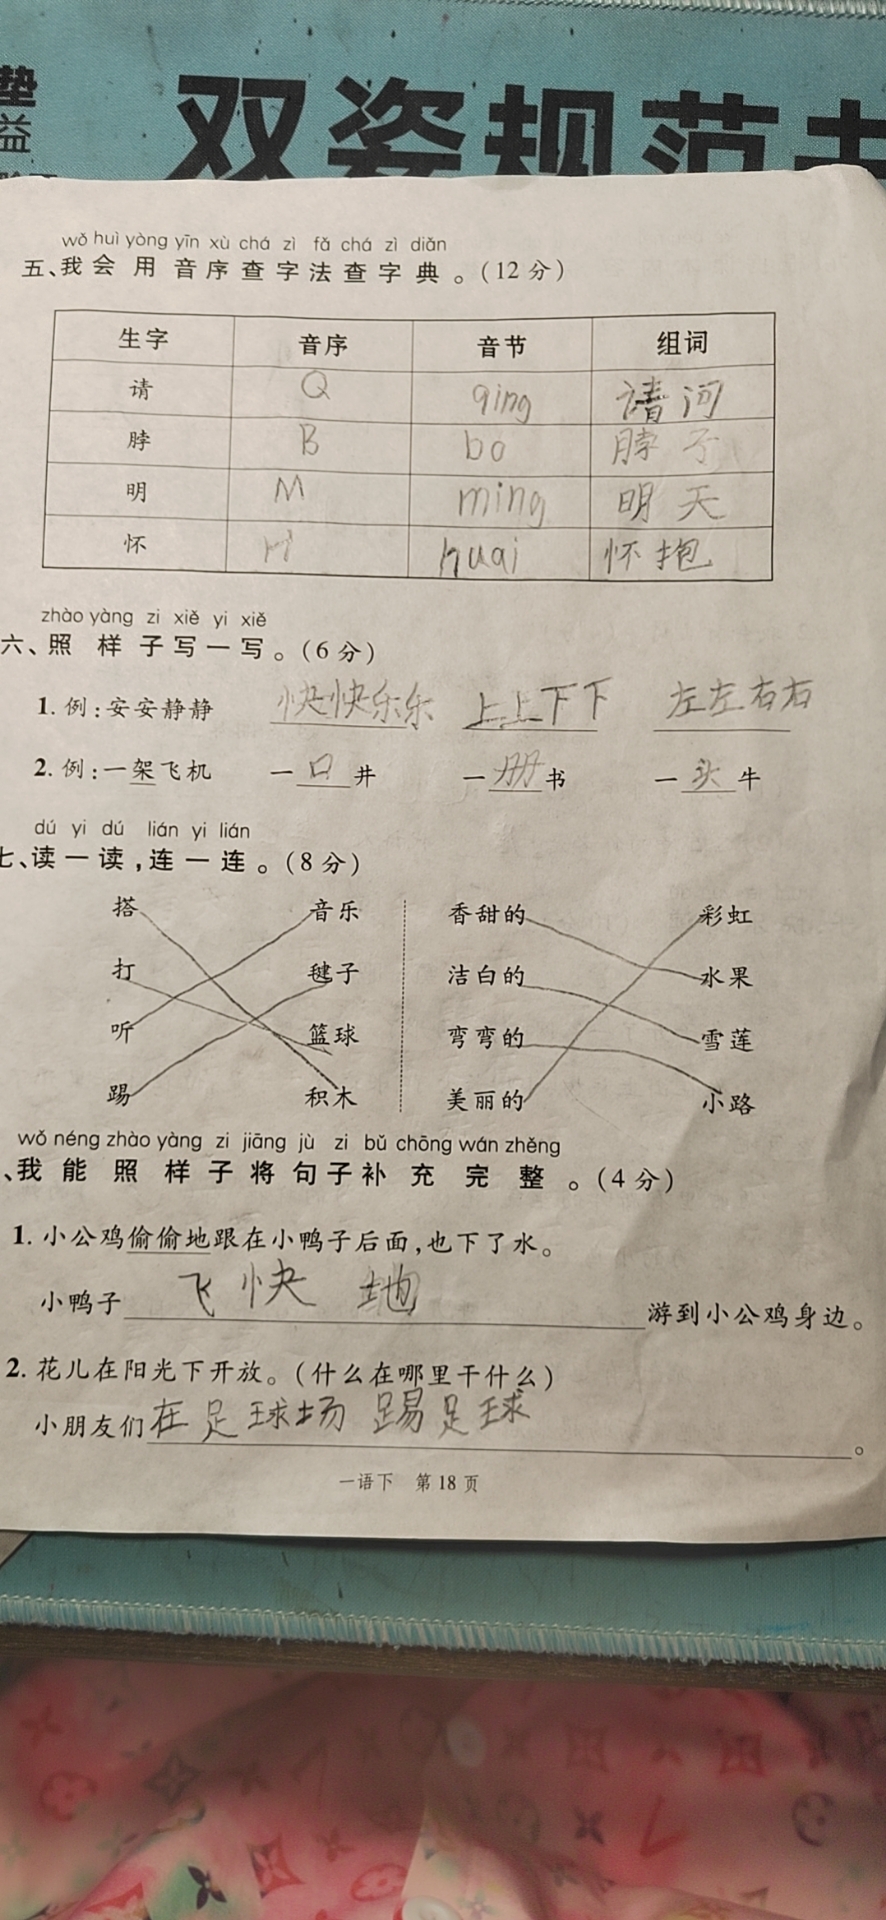 垫
益
双姿规范
wǒ huì yòng yīn xù chá zì fǎ chá zì diǎn
五、我会用音序查字法查字典。(12分)
生字 音序 音节 组词
请 Q qing 请问
脖 B bo 脖子
明 M ming 明天
怀 H huai 怀抱
zhào yàng zi xiě yi xiě
六、照样子写一写。(6分)
1. 例:安安静静 快快乐乐 上上下下 左左右右
2. 例:一架飞机 一口井 一册书 一头牛
dú yi dú lián yi lián
七、读一读,连一连。(8分)
搭 音乐 香甜的 彩虹
打 毽子 洁白的 水果
听 篮球 弯弯的 雪莲
踢 积木 美丽的 小路
wǒ néng zhào yàng zi jiāng jù zi bǔ chōng wán zhěng
、我能照样子将句子补充完整。(4分)
1. 小公鸡偷偷地跟在小鸭子后面,也下了水。
小鸭子飞快地游到小公鸡身边。
2. 花儿在阳光下开放。(什么在哪里干什么)
小朋友们在足球场踢足球。
一语下 第18页